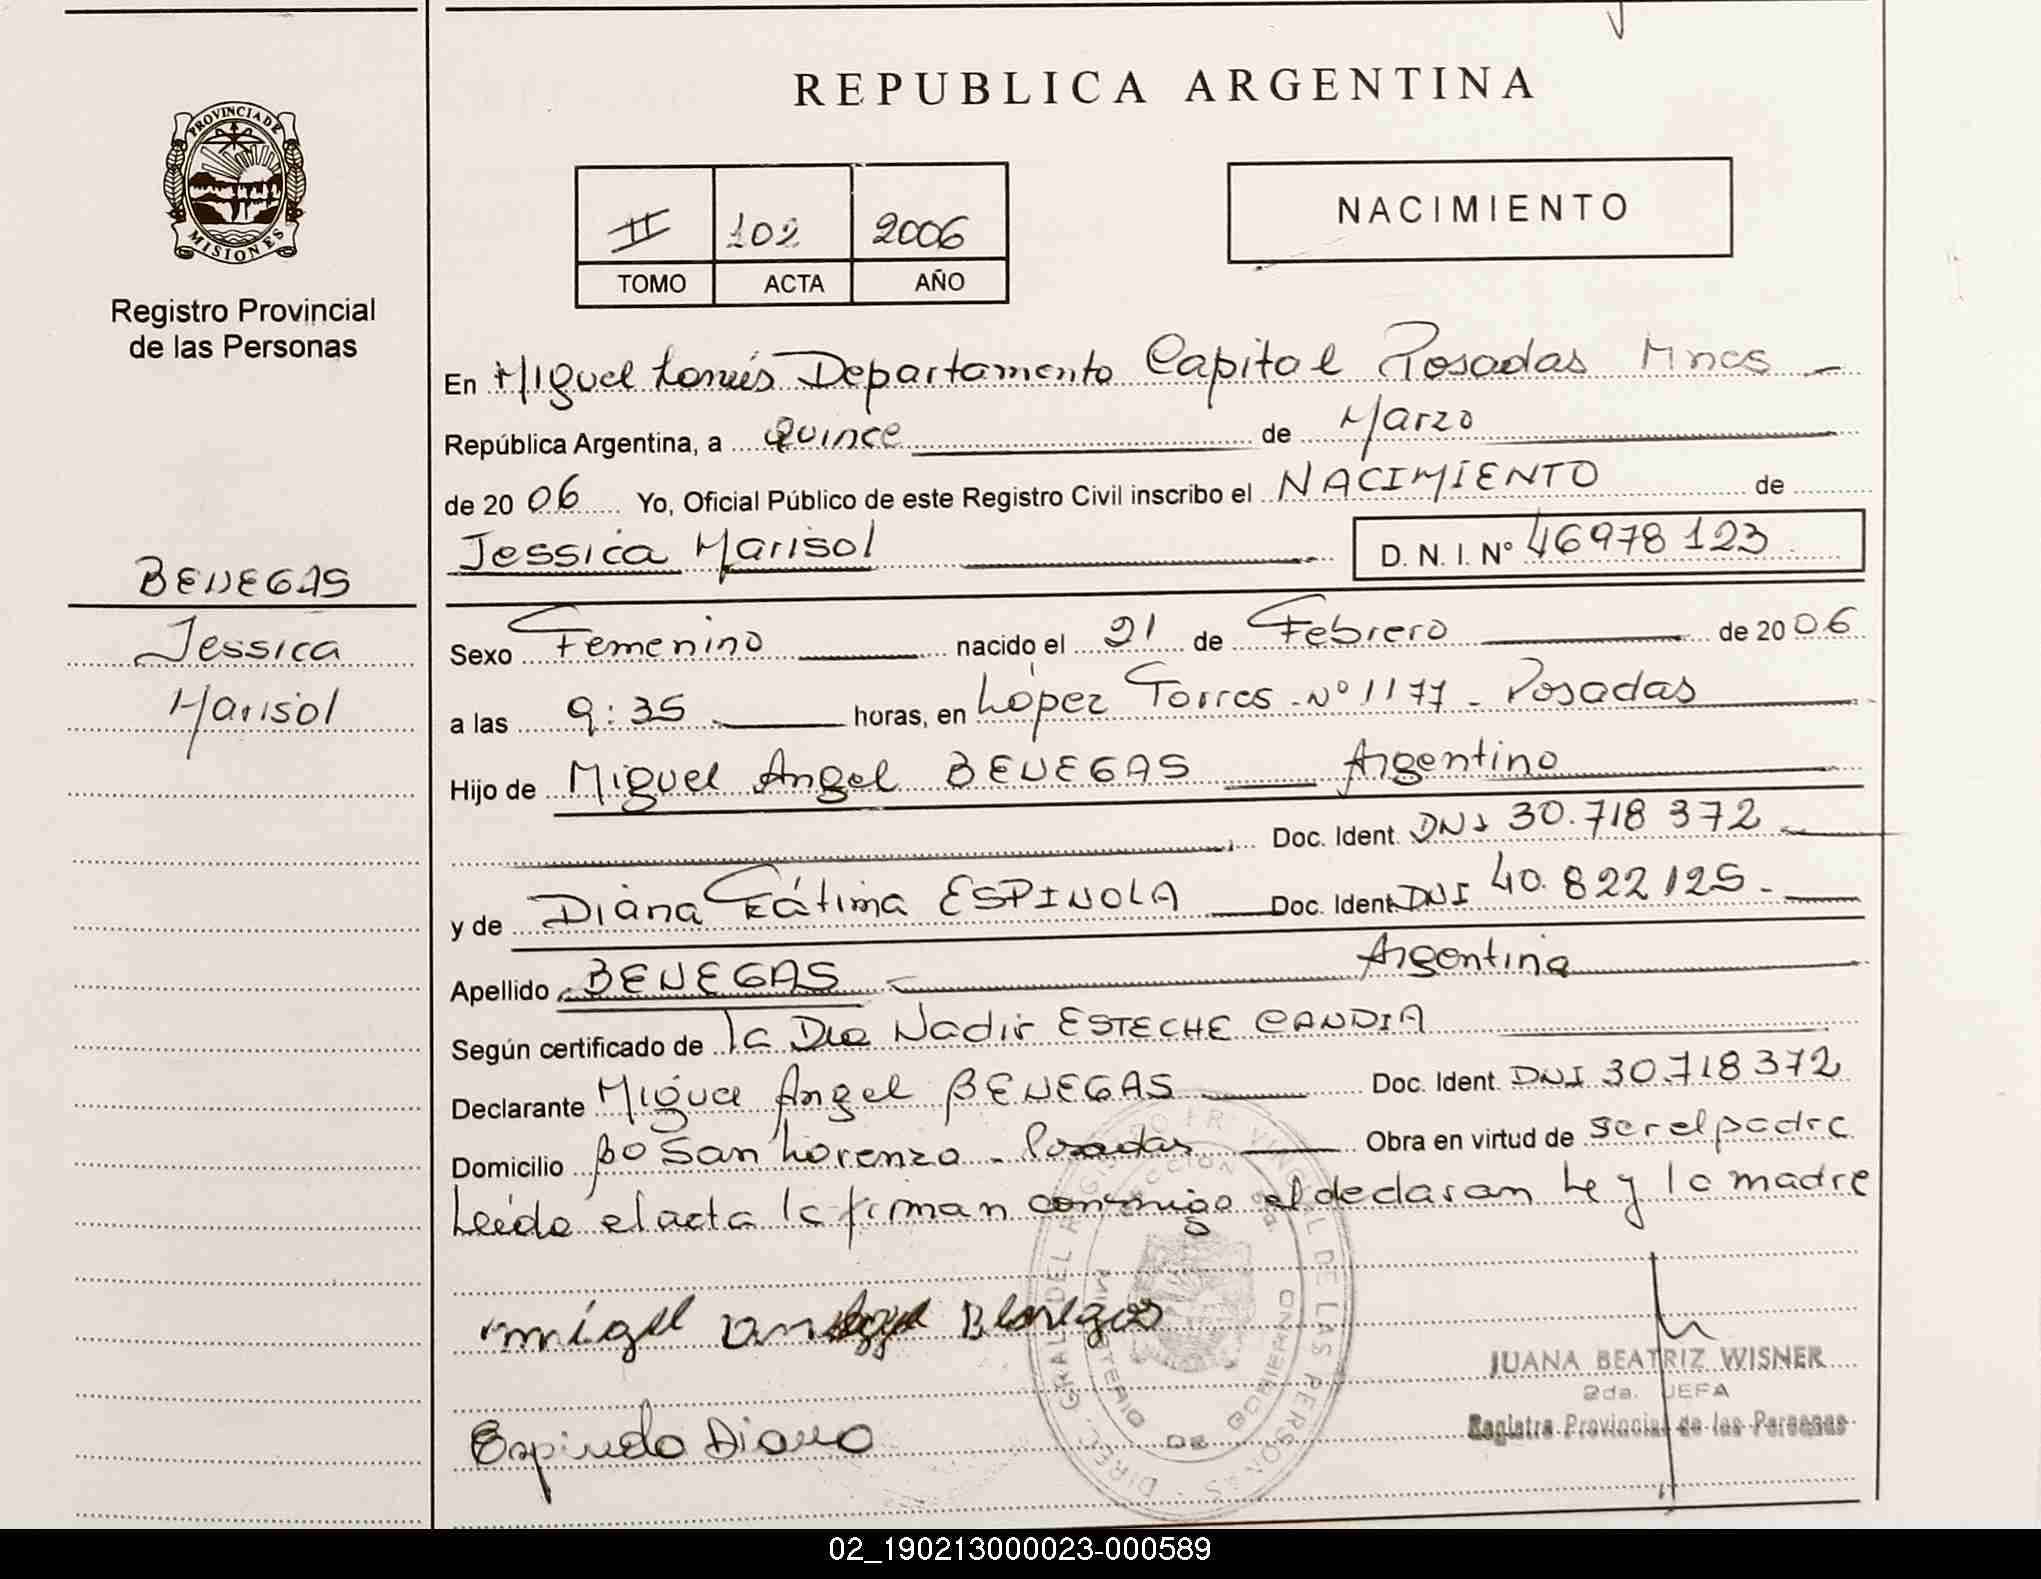 REPUBLICA ARGENTINA
PROVINCIA DE
MISIONES
Registro Provincial
de las Personas
II 102 2006
TOMO ACTA AÑO
NACIMIENTO
En Miguel Lanús Departamento Capital Posadas Mnes
República Argentina, a Quince de Marzo
de 2006 Yo, Oficial Público de este Registro Civil inscribo el NACIMIENTO de
Jessica Marisol D. N. I. Nº 46978123
BENEGAS
Jessica
Marisol
Sexo Femenino nacido el 21 de Febrero de 2006
a las 9:35 horas, en López Torres - Nº 1177 - Posadas
Hijo de Miguel Angel BENEGAS Argentino
Doc. Ident. DNI 30.718 372
y de Diana Fátima ESPINOLA Doc. Ident DNI 40.822 125.
Apellido BENEGAS Argentina
Según certificado de la Dra Nadir ESTECHE CANDIA
Declarante Miguel Angel BENEGAS Doc. Ident. DNI 30.718372
Domicilio Bo San Lorenzo - Posadas Obra en virtud de ser el padre
Leído el acta la firman conmigo el declaran te y la madre
migel Benegas
Espindola Diana
DIREC. GRAL DEL REGISTRO PROVINCIAL DE LAS PERSONAS
MINISTERIO DE GOBIERNO
JUANA BEATRIZ WISNER
2da. JEFA
Registro Provincial de las Personas
02_190213000023-000589